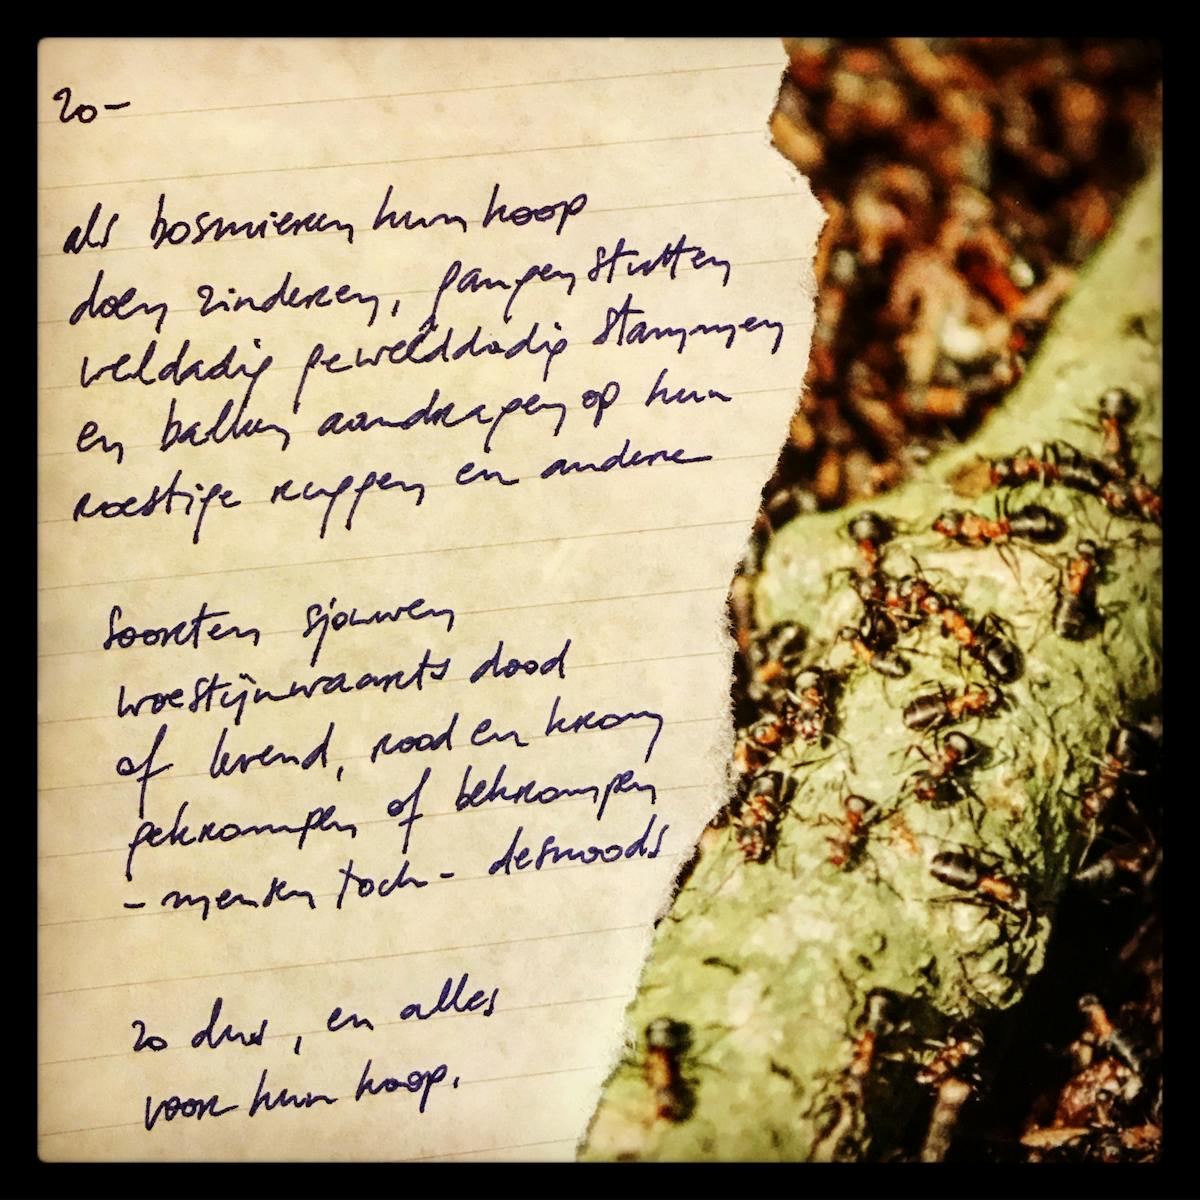 zo-
als bosmieren hun hoop
doen zinderen, gangen stutten
weldadig gewelddadig stammen
en balken aandragen op hun
roestige ruggen en andere
soorten sjouwen
woestijnwaarts dood
of levend, rood en krom
gekrompen of bekrompen
- mensen toch - desnoods
zo dus, en alles
voor hun hoop.